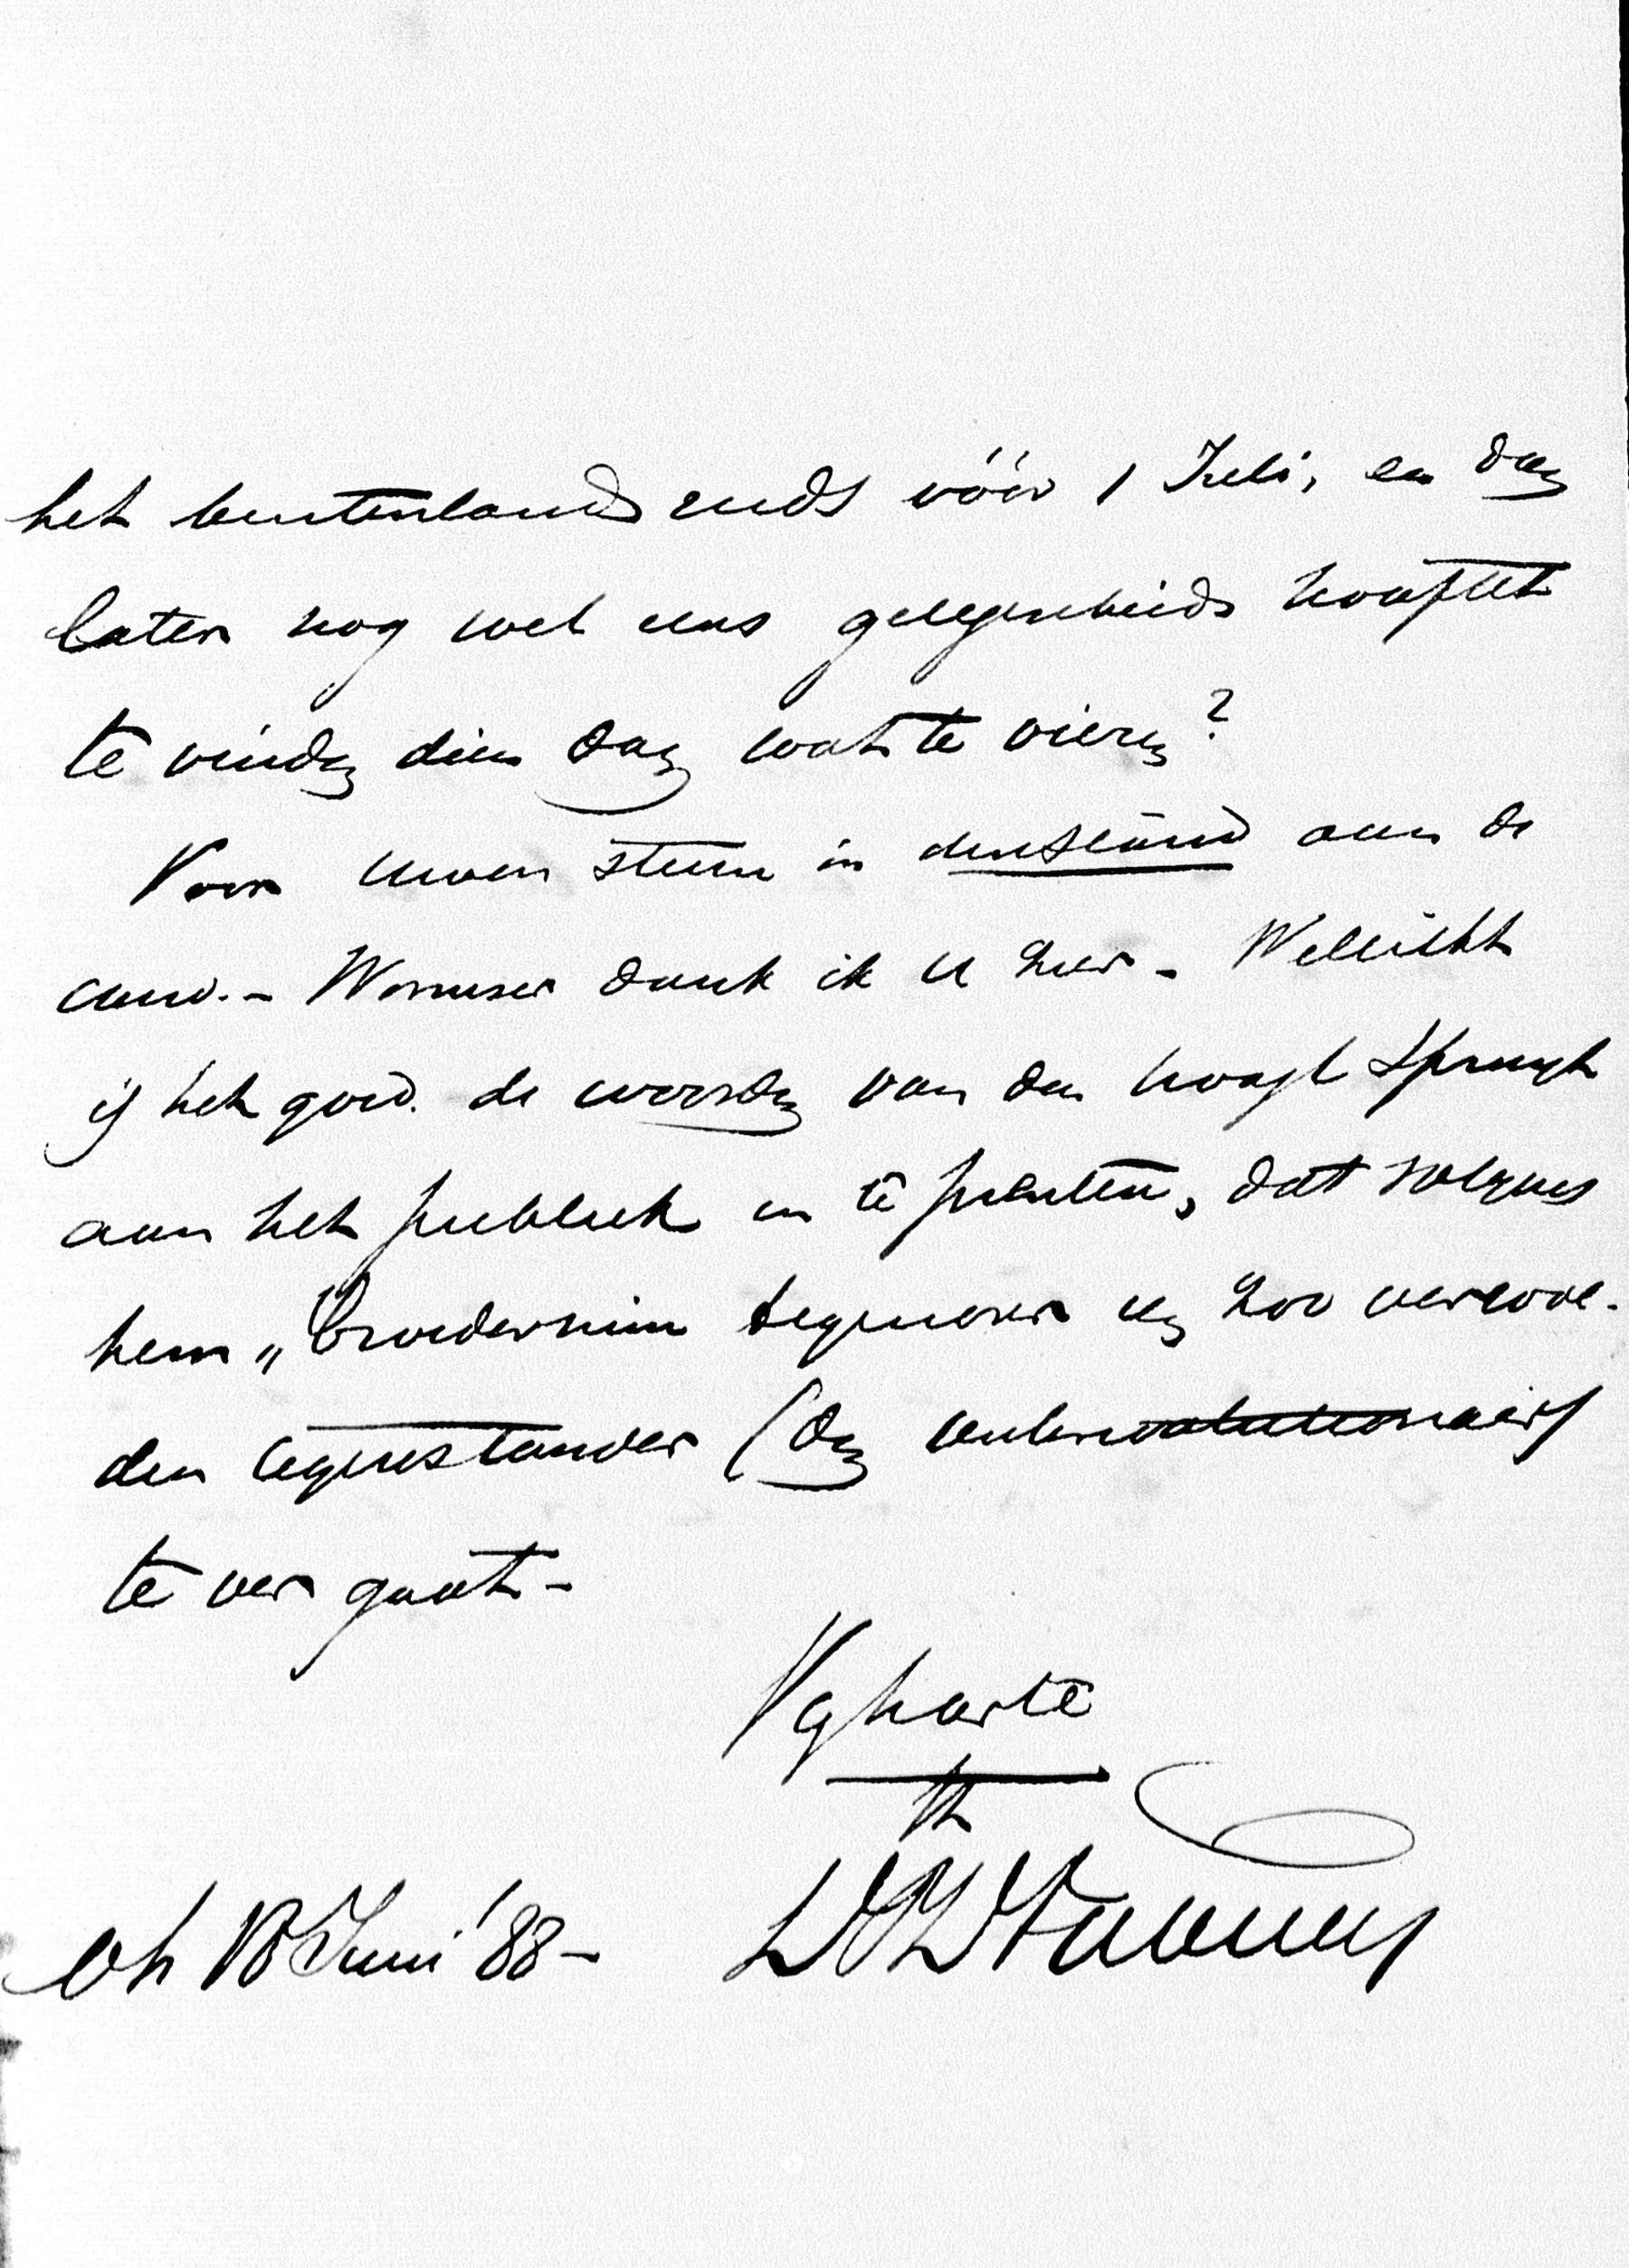 het buitenland reeds vóór 1 Juli, en dan
later nog wel eens gelegenheid hooptet
te vinden dien dag wat te vieren?
Voor uwen steun in de Standaard aan de
cand. - Wormser dank ik u zeer - Wellicht
is het goed de woorden van den hoogl Spruyt
aan het publiek in te prenten, dat volgens
hem „broedermin tegenover een zoo verwoe-
den tegenstander (den antirevolutionair)
te ver gaat -
Vgharte
tt
18 Juni '88 -